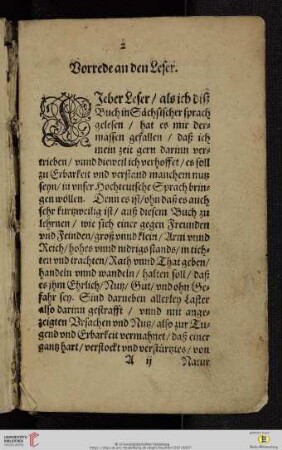 2
Vorrede an den Leser.
LIeber Leser / als ich diß
Buch in Sächsischer sprach
gelesen / hat es mir der-
massen gefallen / daß ich
mein zeit gern darinn ver-
trieben / vnnd dieweil ich verhoffet / es soll
zu Erbarkeit vnd verstand manchem nutz
seyn / in vnser Hochteutsche Sprach brin-
gen wöllen. Denn es ist / ohn daß es auch
sehr kurtzweilig ist / auß diesem Buch zu
lehrnen / wie sich einer gegen Freunden
vnd Feinden / groß vnnd klein / Arm vnnd
Reich / hohes vnnd nidrigs stands / in tich-
ten vnd trachten / Rath vnnd That geben /
handeln vnnd wandeln / halten soll / daß
es jhm Ehrlich / Nutz / Gut / vnd ohn Ge-
fahr sey. Sind darneben allerley Laster
also darinn gestrafft / vnnd mit ange-
zeigten Vrsachen vnd Nutz / also zur Tu-
gend vnd Erbarkeit vermahnet / daß einer
gantz hart / verstockt vnd verstürtzt / von
A ij Natur